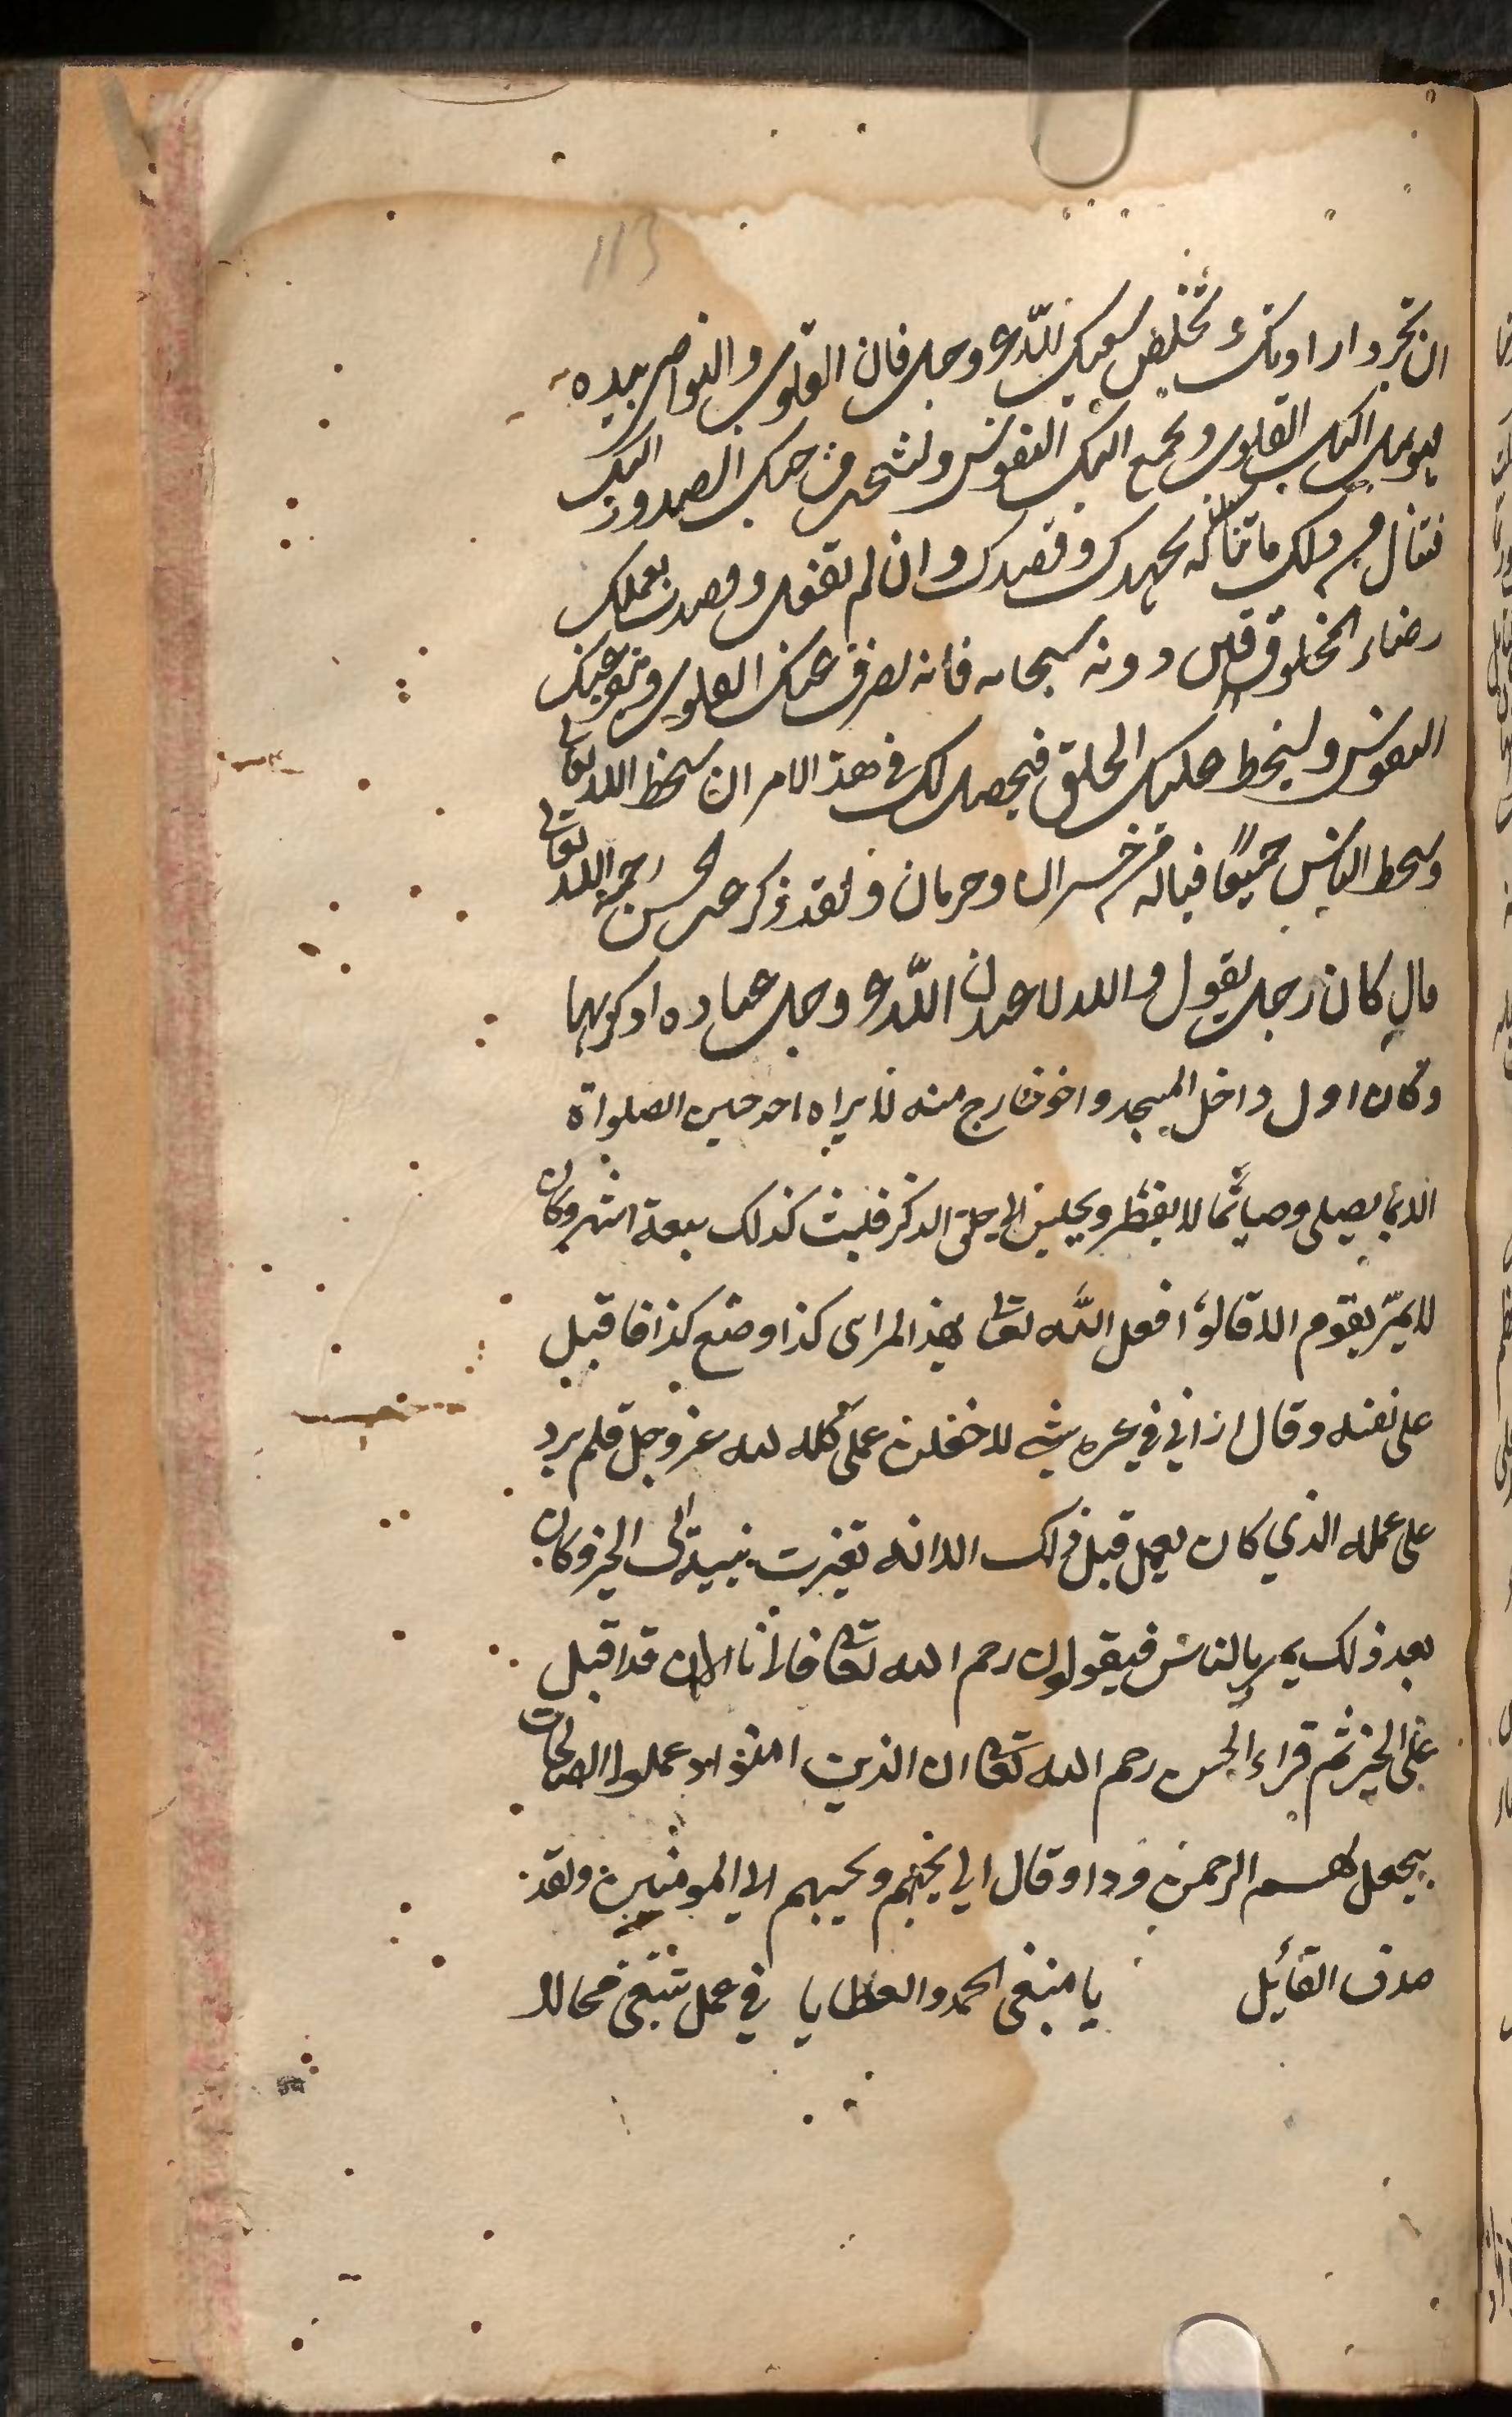 113
ان تجرد ارادتك و تخلص سعيك لله عز وجل فان القلوب والنواصي بيده
يميل اليك القلوب ويجمع اليك النفوس ولشحن من حبك الصدور اليك
فتنال من ذلك ما تناله بجهدك وقصدك وان لم تفعل وقصدت بعملك
رضاء المخلوقين دونه سبحانه فانه يصرف عنك القلوب وتنفر عنك
النفوس ويسخط عليك الخلق فيحصل لك في هذ الامر ان سخط الله تعالى
وسخط الناس جميعا فياله من خسران وحرمان ولقد ذكر عن الحسن رحمه الله تعالى
قال كان رجل يقول والله لاعبدن الله عز وجل عباده اذكر بها
وكان اول داخل المسجد واخر خارج منه لا يراه احد حين الصلواة
الا قايما يصلى وصائما لا يفطر ويجلس الى حلق الذكر فلبث كذلك سبعة اشهر وكان
لا يمر بقوم الا قالوا فعل الله تعا بهذ المراى كذا وصنع كذا فاقبل
على نفسه وقال اراني في غير شي لاجعلن عملى كله لله عز وجل فلم يزد
على عمله الذي كان يعمل قبل ذلك الا انه تغيرت نيته الى الخير وكان
بعد ذلك يمر بالناس فيقولون رحم الله تعا فلانا الان قد اقبل
على الخير ثم قراء الحسن رحم الله تعا ان الذين امنوا وعملوا الصالحات
سيجعل لهم الرحمن ودا وقال اي يحبهم ويحببهم الى المومنين ولقد
صدق القائل يا مبتغى الحمد والعطايا في عمل تبتغى محالا